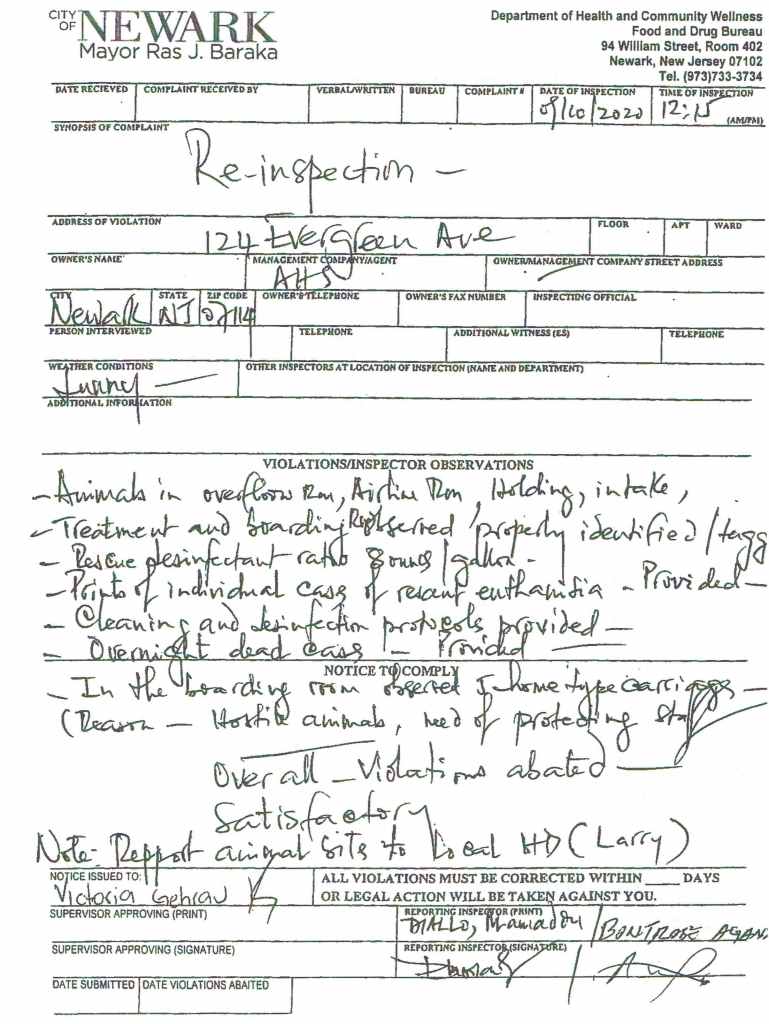 CITY OF NEWARK
Mayor Ras J. Baraka
Department of Health and Community Wellness
Food and Drug Bureau
94 William Street, Room 402
Newark, New Jersey 07102
Tel. (973)733-3734
DATE RECIEVED COMPLAINT RECEIVED BY VERBAL/WRITTEN BUREAU COMPLAINT # DATE OF INSPECTION TIME OF INSPECTION
/10/2020 12:15 (AM/PM)
SYNOPSIS OF COMPLAINT
Re-inspection —
ADDRESS OF VIOLATION FLOOR APT WARD
124 Evergreen Ave
OWNER'S NAME MANAGEMENT COMPANY/AGENT OWNER/MANAGEMENT COMPANY STREET ADDRESS
AHS
CITY STATE ZIP CODE OWNER'S TELEPHONE OWNER'S FAX NUMBER INSPECTIING OFFICIAL
Newark NJ 07114
PERSON INTERVIEWED TELEPHONE ADDITIONAL WITNESS (ES) TELEPHONE
WEATHER CONDITIONS OTHER INSPECTORS AT LOCATION OF INSPECTION (NAME AND DEPARTMENT)
Sunny —
ADDITIONAL INFORMATION
VIOLATIONS/INSPECTOR OBSERVATIONS
- Animals in overflow Rm, Airline Rm, Holding, intake,
- Treatment and boarding Rm observed properly identified / tagg
- Rescue desinfectant ratio 8 ounces/gallon -
- Prints of individual case of recent euthanisia - Provided -
- Cleaning and desinfection protocols provided -
- Overnight dead case - Provided
NOTICE TO COMPLY
- In the boarding room observed 5 home type carriages -
(Reason - Hostile animals, need of protecting staff
Over all - Violations abated
Satisfactory
Note: Repport animal bits to Local HD (Larry)
NOTICE ISSUED TO: ALL VIOLATIONS MUST BE CORRECTED WITHIN ____ DAYS
Victoria OR LEGAL ACTION WILL BE TAKEN AGAINST YOU.
SUPERVISOR APPROVING (PRINT) REPORTING INSPECTOR (PRINT)
DIALLO, Mamadou / BONTROSE
SUPERVISOR APPROVING (SIGNATURE) REPORTING INSPECTOR (SIGNATURE)
DATE SUBMITTED DATE VIOLATIONS ABAITED